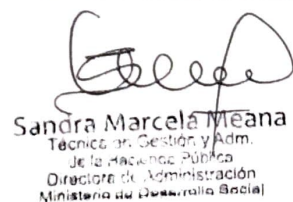 Sandra Marcela Meana
Técnica en Gestión y Adm.
de la Hacienda Pública
Directora de Administración
Ministerio de Desarrollo Social